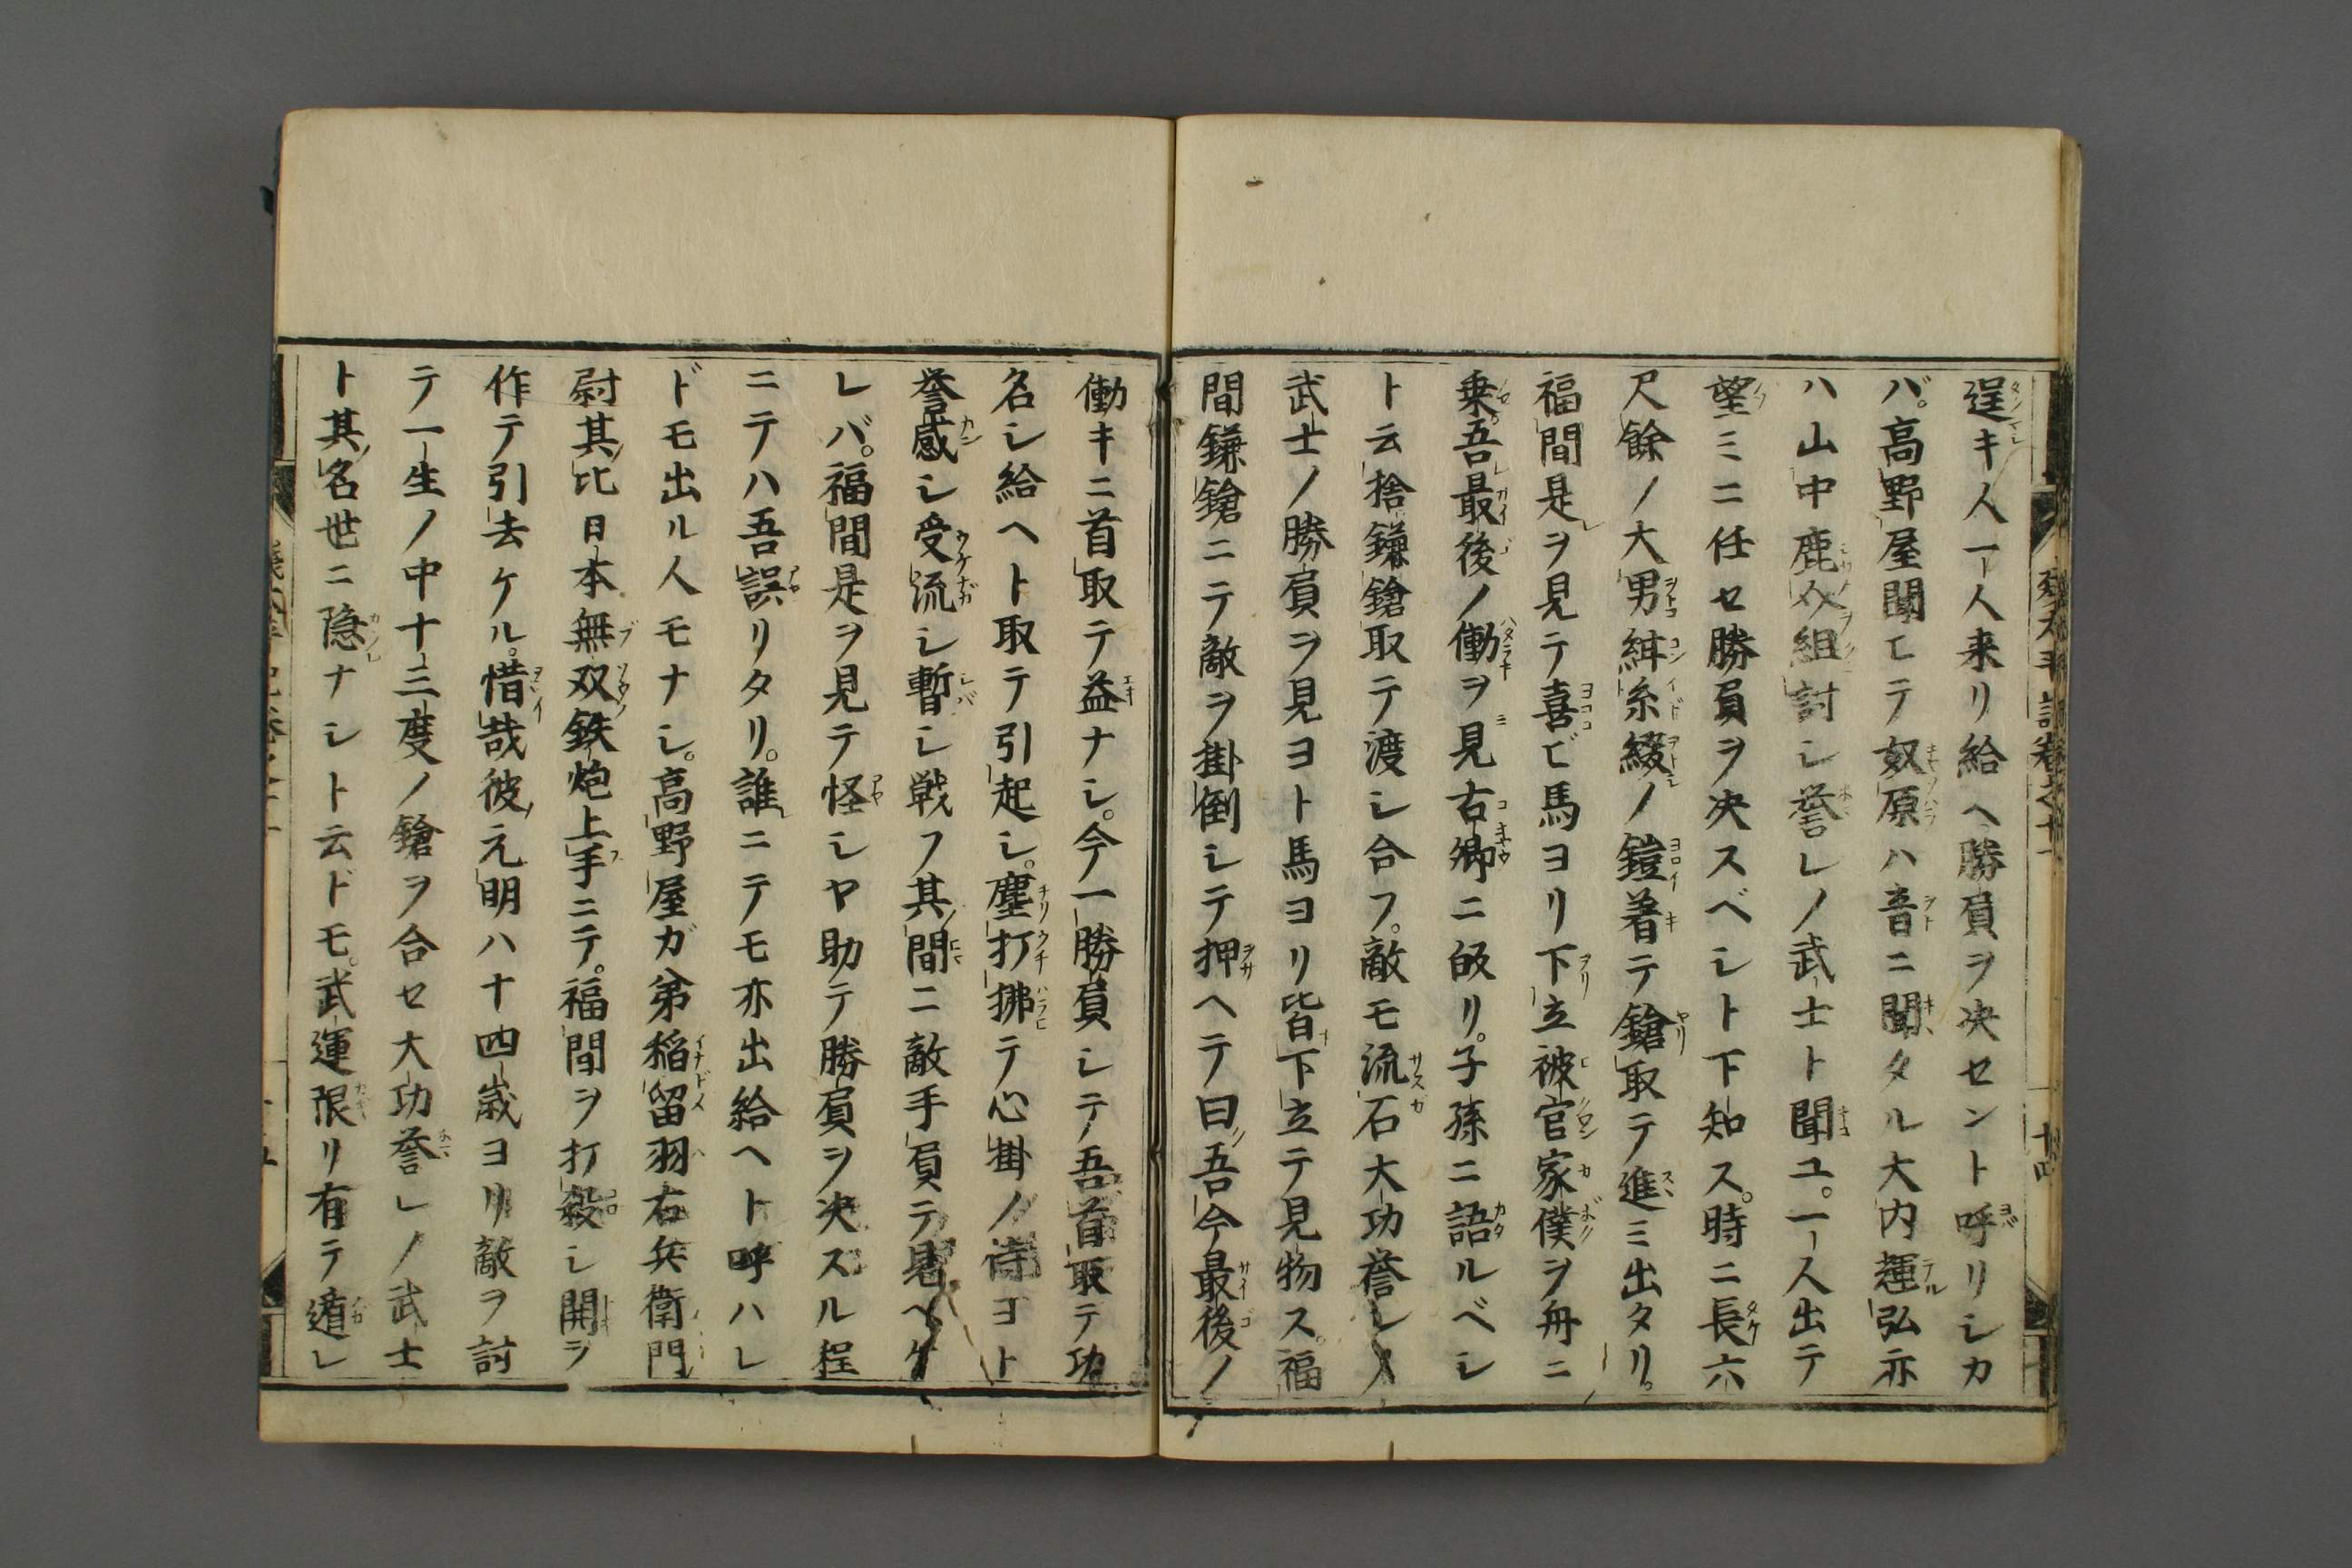 逞キ人一人来リ給ヘ勝負ヲ决セント呼リシカ
バ。高野屋聞ヒテ奴原ハ音ニ聞タル大内輝弘亦
ハ山中鹿介組討シ誉レノ武士ト聞ユ。一人出テ
望ミニ任セ勝負ヲ决スベシト下知ス。時ニ長六
尺餘ノ大男紺糸綴ノ鎧着テ鎗取テ進ミ出タリ。
福間是ヲ見テ喜ビ馬ヨリ下立被官家僕ヲ舟ニ
乗。吾最後ノ働ヲ見古郷ニ皈リ。子孫ニ語ルベシ
ト云捨鎌鎗取テ渡シ合フ。敵モ流石大功誉レノ
武士ノ勝負ヲ見ヨト馬ヨリ皆下立テ見物ス。福
間鎌鎗ニテ敵ヲ掛倒シテ押ヘテ曰吾今最後ノ
働キニ首取テ益ナシ。今一勝負シテ吾首取テ功
名シ給ヘト取テ引起シ。塵打拂テ心掛ノ侍ヨト
誉感シ受流シ暫シ戦フ其間ニ敵手負テ見ヘケ
レバ。福間是ヲ見テ怪シヤ助テ勝負ヲ决スル程
ニテハ吾誤リタリ。誰ニテモ亦出給ヘト呼ハレ
ドモ出ル人モナシ。高野屋ガ弟稲留羽右兵衛門
尉其比日本無双鉄炮上手ニテ。福間ヲ打殺シ開ヲ
作テ引去ケル。惜哉彼元明ハ十四歳ヨリ敵ヲ討
テ一生ノ中十三度ノ鎗ヲ合セ大功誉レノ武士
ト其名世ニ隠ナシト云ドモ。武運限リ有テ遁レ